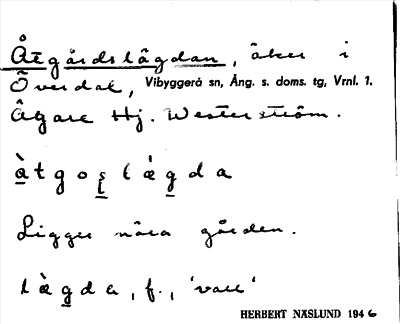 Åtgårdslägdan, åker i
Överdal, Vibyggerå sn, Ång. s. doms. tg, Vrnl. 1.
Ägare Hj. Westerström.
àtgoșlàgda
Ligger nära gården.
làgda, f., 'vall'
HERBERT NÄSLUND 1946